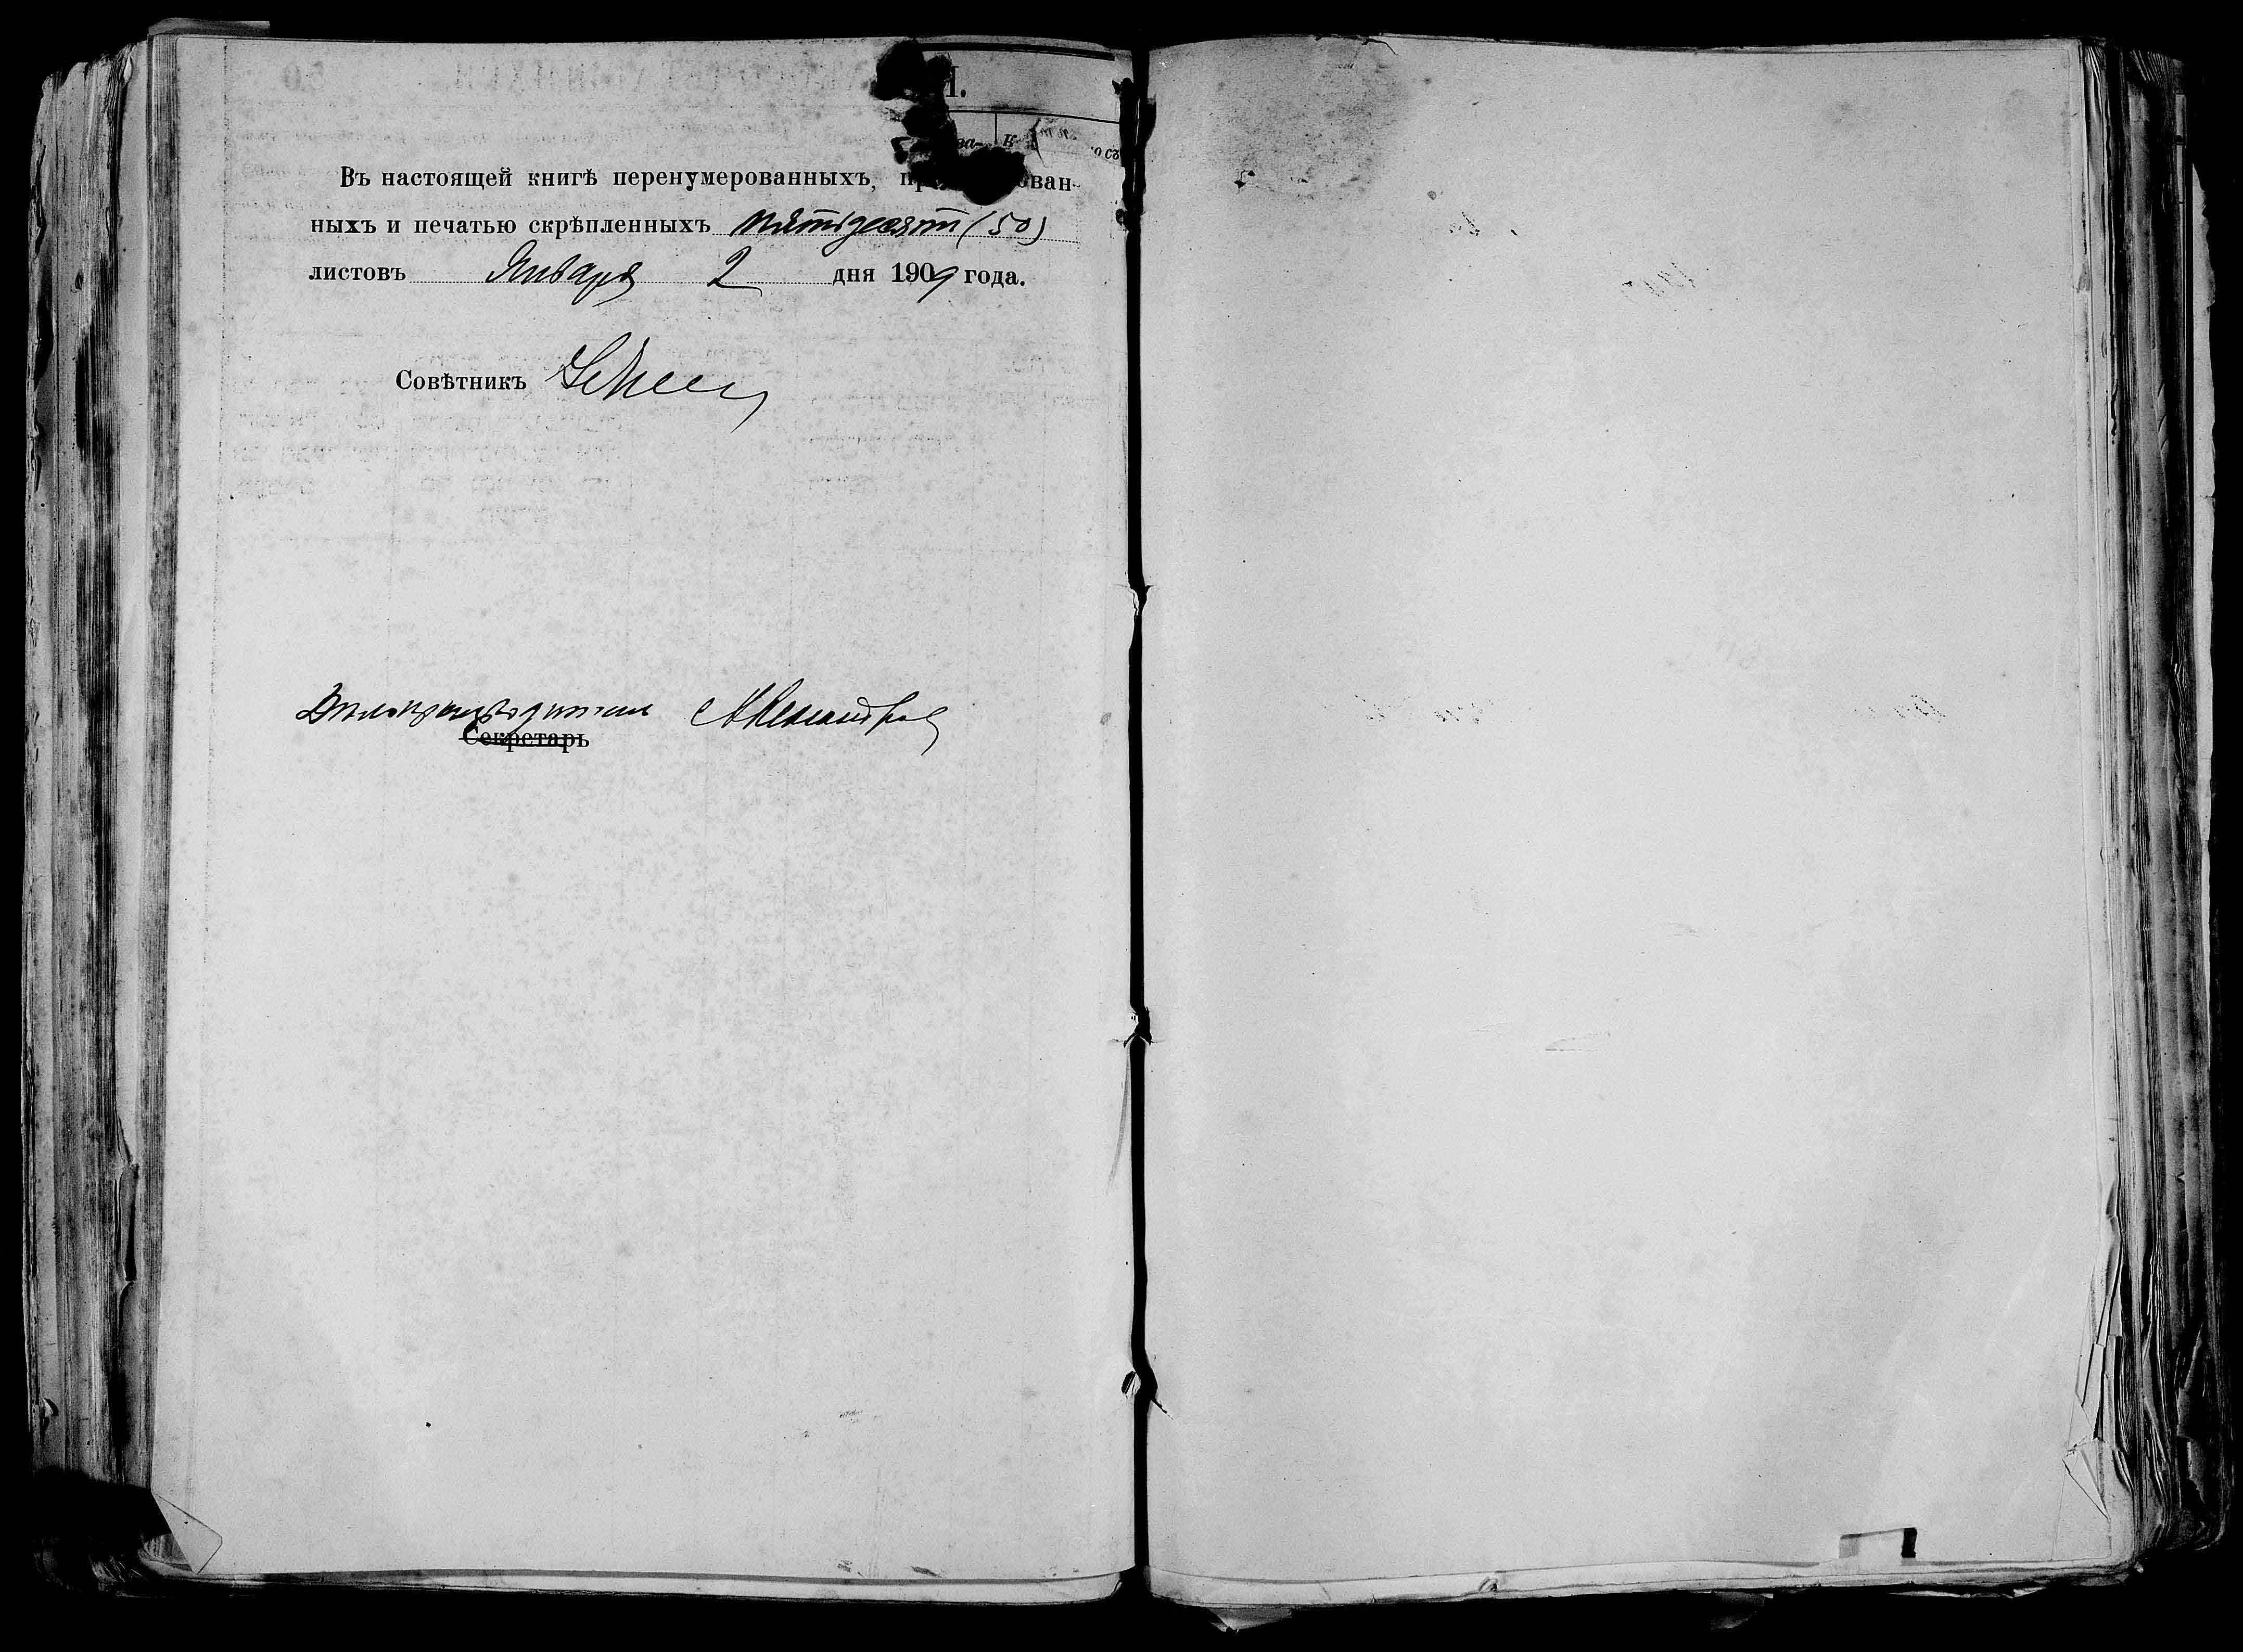 Въ настоящей книгѣ перенумерованныхъ, ован-
ныхъ и печатью скрѣпленныхъ пятьдесят (50)
листовъ Января 2 дня 1909 года.
Совѣтникъ
Дѣлопроизводитель Александров
Секретарь